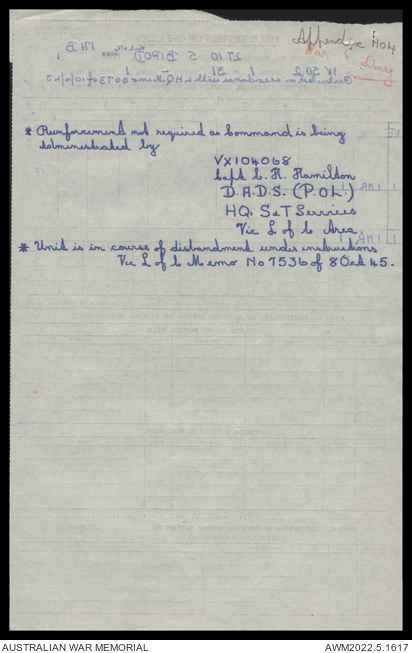 Appendix No 4
War Diary
* Reinforcement not required as Command is being
administrated by
VX104068
Capt C. H. Hamilton
D.A.D.S. (P.O.L.)
HQ. S & T Services
Vic L of C Area
* Unit is in course of disbandment under instructions
Vic L of C Memo No 7536 of 8 Oct 45.
AUSTRALIAN WAR MEMORIAL
AWM2022.5.1617